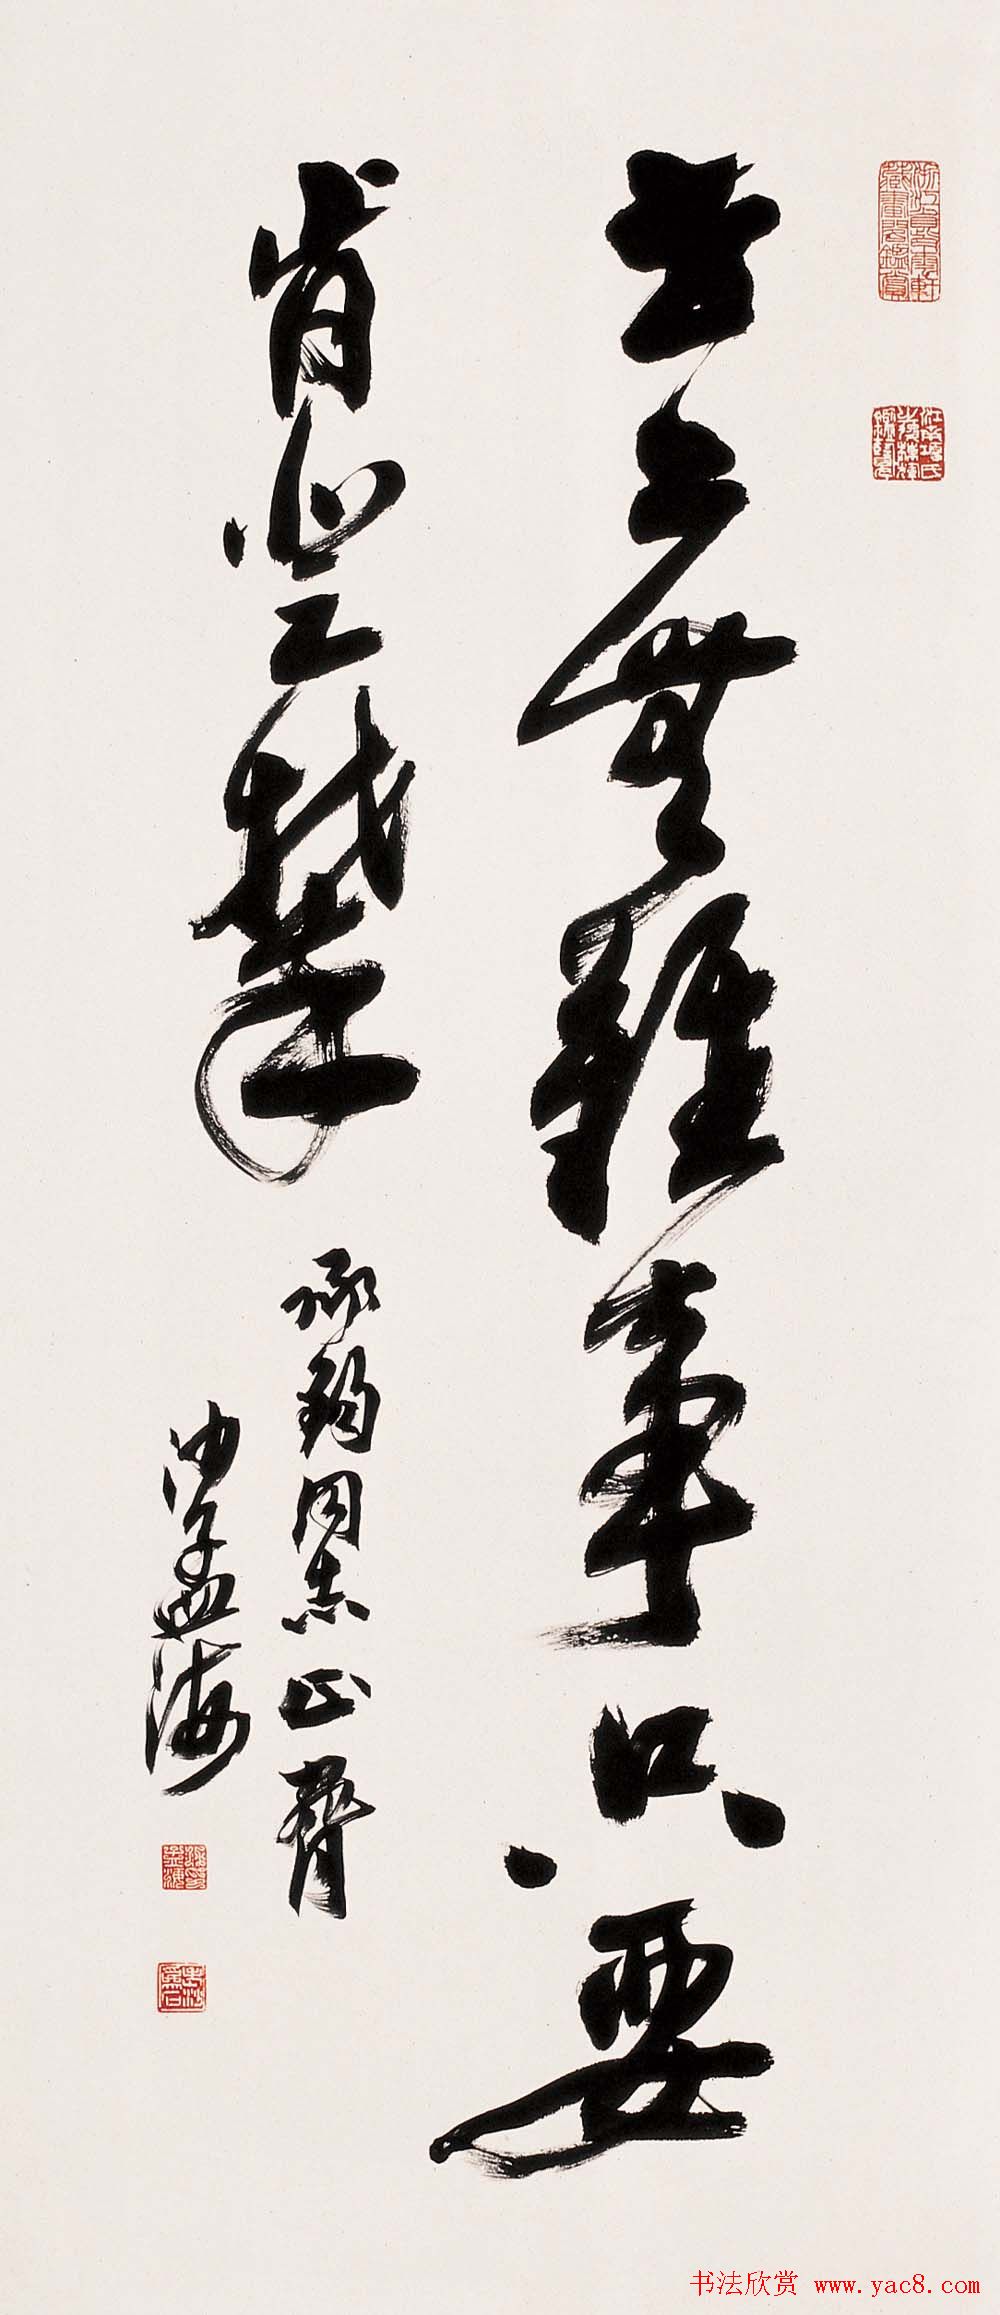 世上無難事只要
肯登攀
承鈞同志正臂
沙孟海
书法欣赏 www.yac8.com